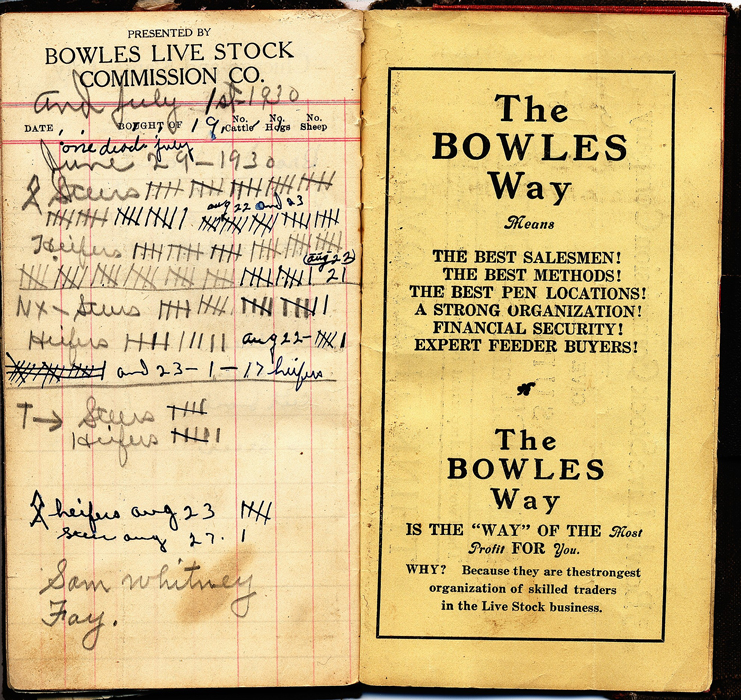 PRESENTED BY
BOWLES LIVE STOCK
COMMISSION CO.
and July 1st-1930
DATE BOUGHT OF 19 No. Cattle No. Hogs No. Sheep
one dead July
June 29-1930
Steers
aug 22 and 23
Heifers
(aug 22)
21
NX-Steers
Heifers aug 22-
and 23-1-17 heifers
T→ Steers
Heifers
heifers aug 23
steer aug 27. 1
Sam Whitney
Fay.
The
BOWLES
Way
Means
THE BEST SALESMEN!
THE BEST METHODS!
THE BEST PEN LOCATIONS!
A STRONG ORGANIZATION!
FINANCIAL SECURITY!
EXPERT FEEDER BUYERS!
The
BOWLES
Way
IS THE "WAY" OF THE Most
Profit FOR You.
WHY? Because they are thestrongest
organization of skilled traders
in the Live Stock business.